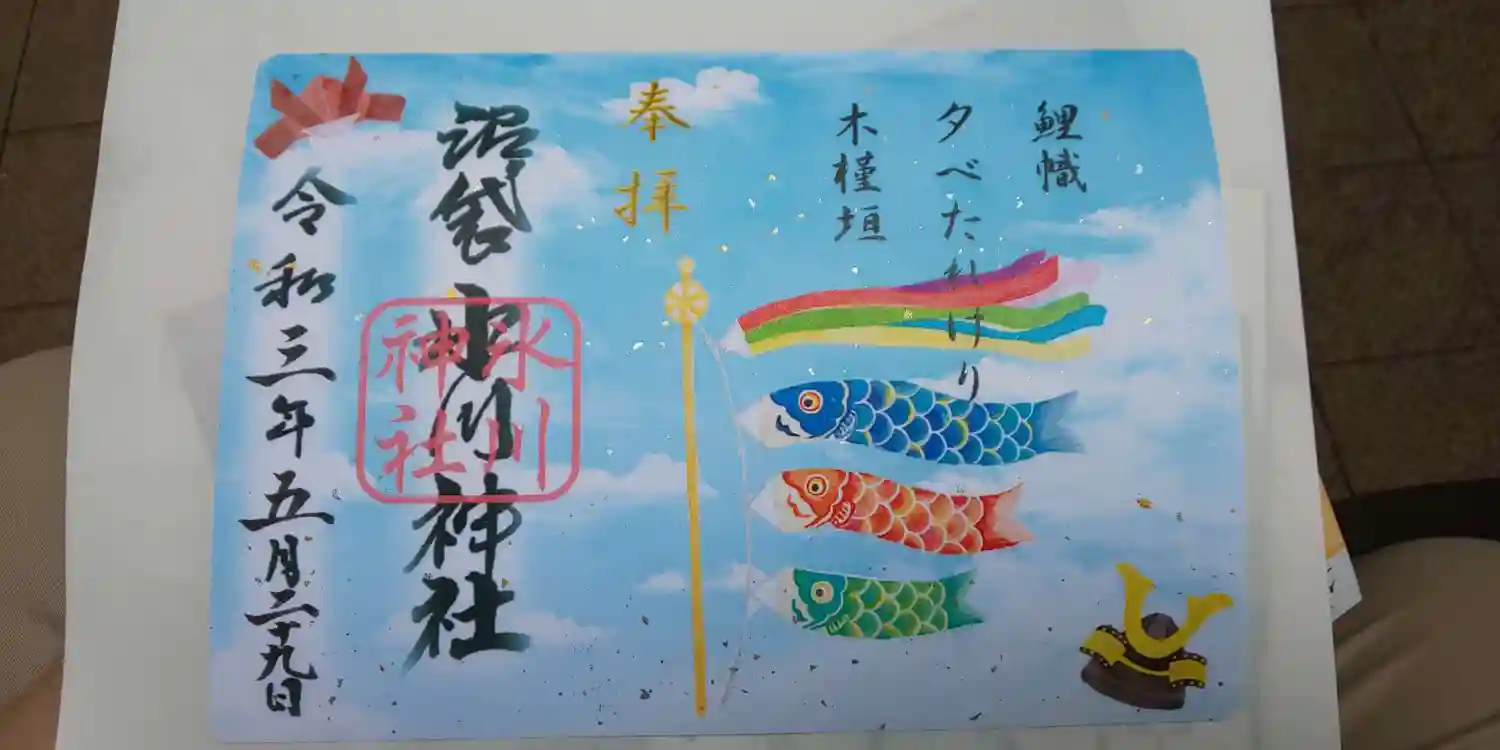 鯉幟
夕べたれけり
木槿垣
奉拝
沼袋氷川神社
氷川
神社
令和三年五月二十九日